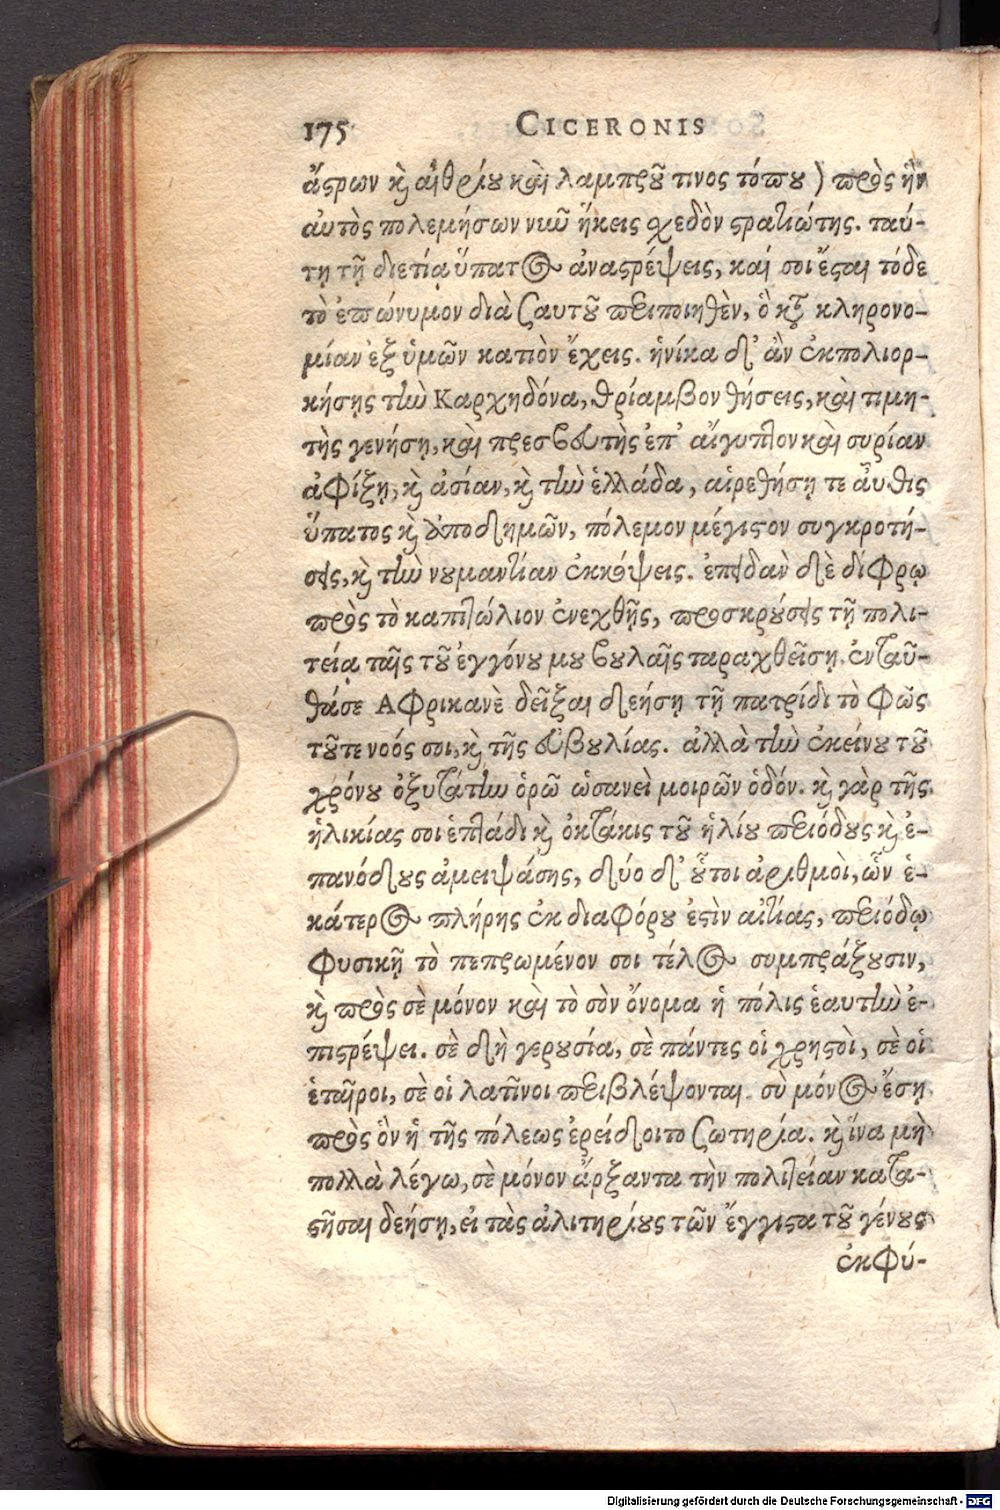 175 CICERONIS
ἄστρων καὶ αἰθρίου καὶ λαμπροῦ τινος τόπου) πρὸς ἣν
αὐτὸς πολεμήσων νιῶ ἥκεις σχεδὸν στρατιώτης. ταύ-
τῃ τῇ διετίᾳ ὕπατος ἀναστρέψεις, καί σοι ἔσται τόδε
τὸ ἐπώνυμον διὰ σαυτοῦ περιποιηθὲν, ὃ κατὰ κληρονο-
μίαν ἐξ ὑμῶν κατιὸν ἔχεις. ἡνίκα δ' ἂν ἐκπολιορ-
κήσῃς τὴν Καρχηδόνα, θρίαμβον θήσεις, καὶ τιμη-
τὴς γενήσῃ, καὶ πρεσβευτὴς ἐπ' αἴγυπτον καὶ συρίαν
ἀφίξῃ, καὶ ἀσίαν, καὶ τὴν ἑλλάδα, αἱρεθήσῃ τε αὖθις
ὕπατος καὶ ἀποδημῶν, πόλεμον μέγιστον συγκροτή-
σεις, καὶ τὴν νουμαντίαν ἐκκόψεις. ἐπειδὰν δὲ δίφρῳ
πρὸς τὸ καπιτώλιον ἐνεχθῇς, προσκρούσεις τῇ πολι-
τείᾳ ταῖς τοῦ ἐγγόνου μου βουλαῖς ταραχθεῖσῃ. ἐνταῦ-
θάσε Αφρικανὲ δεῖξαι δεήσῃ τῇ πατρίδι τὸ φῶς
τοῦτε νοός σοι, καὶ τῆς εὐβουλίας. ἀλλὰ τὴν ἐκείνου τοῦ
χρόνου ὀξυτάτην ὁρῶ ὡσανεὶ μοιρῶν ὁδόν. καὶ γὰρ τῆς
ἡλικίας σοι ἑπτάδι καὶ ὀκτάκις τοῦ ἡλίου περιόδους καὶ ἐ-
πανόδους ἀμειψάσης, δύο δ' οὗτοι ἀριθμοὶ, ὧν ἑ-
κάτερος πλήρης ἐκ διαφόρου ἐστὶν αἰτίας, περιόδῳ
φυσικῇ τὸ πεπρωμένον σοι τέλος συμπράξουσιν,
καὶ πρὸς σὲ μόνον καὶ τὸ σὸν ὄνομα ἡ πόλις ἑαυτὴν ἐ-
πιστρέψει. σὲ δὴ γερουσία, σὲ πάντες οἱ χρηστοὶ, σὲ οἱ
ἑταῖροι, σὲ οἱ λατῖνοι περιβλέψονται. σὺ μόνος ἔσῃ
πρὸς ὃν ἡ τῆς πόλεως ἐρείδοιτο σωτηρία. καὶ ἵνα μὴ
πολλὰ λέγω, σὲ μόνον ἄρξαντα τὴν πολιτείαν κατα-
στῆσαι δεήσῃ, εἰ τὰς ἀλιτηρίους τῶν ἔγγιστα τοῦ γένους
ἐκφύ-
Digitalisierung gefördert durch die Deutsche Forschungsgemeinschaft - DFG